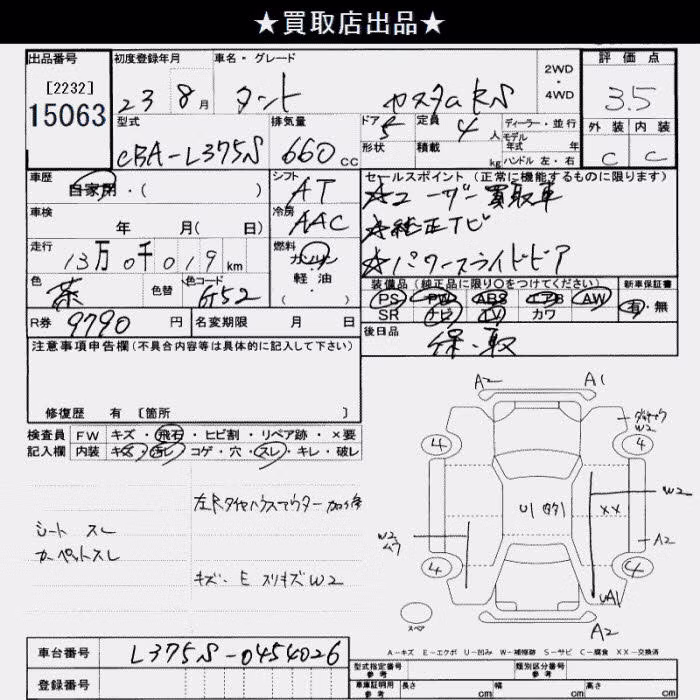 ★買取店出品★
出品番号 初度登録年月 車名・グレード 2WD・4WD 評価点
[2232]
15063
23 8月 タント カスタムRS 3.5
型式 排気量 ドア 定員 ディーラー・並行 外装 内装
CBA-L375S 660cc 5 4人 モデル年式 年 C C
形状 積載 kg ハンドル 左・右
車歴 シフト セールスポイント(正常に機能するものに限ります)
自家用・( ) AT ☆ユーザー買取車
車検 冷房 ☆純正ナビ
年 月( 日) AAC
走行 燃料 ☆パワースライドドア
13万0千019km ガソリン
軽油
・( )
色 色替 色コード 装備品(純正品に限り○をつけてください) 新車保証書
茶 G52 PS PW ABS エアB AW 有・無
SR ナビ TV カワ
R券 9790円 名変期限 月 日 後日品
保・取
注意事項申告欄(不具合内容等は具体的に記入して下さい)
修復歴 有 〔箇所 〕
検査員 FW キズ・飛石・ヒビ割・リペア跡・×要
記入欄 内装 キズ・汚レ コゲ・穴・スレ・キレ・破レ
シート スレ
カーペットスレ
キズ・E スリキズW2
A2 A1
W2
4 4
U1
W2 XX W2
A2
4 4
A2
スペア
A-キズ E-エクボ U-凹み W-補修跡 S-サビ C-腐食 XX-交換済
車台番号 L375S-0454026
登録番号
型式指定番号 参考 類別区分番号 参考
車庫証明用 参考 長さ cm 幅 cm 高さ cm